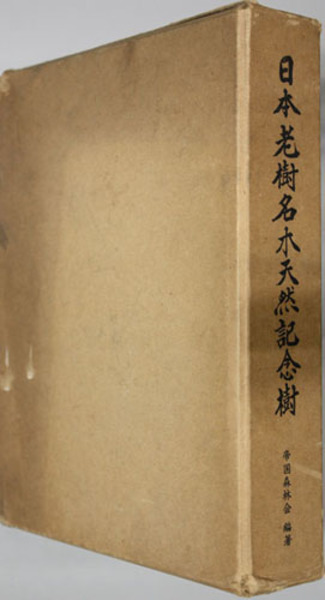 日本老樹名木天然記念樹
帝国森林会 編著